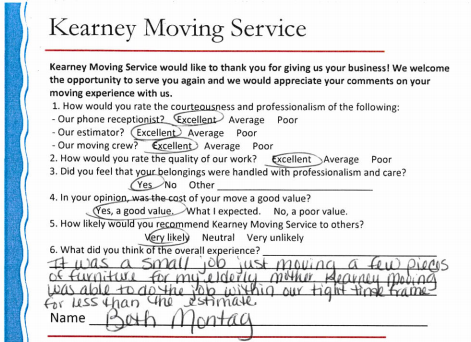 Kearney Moving Service
Kearney Moving Service would like to thank you for giving us your business! We welcome
the opportunity to serve you again and we would appreciate your comments on your
moving experience with us.
1. How would you rate the courteousness and professionalism of the following:
- Our phone receptionist? Excellent Average Poor
- Our estimator? Excellent Average Poor
- Our moving crew? Excellent Average Poor
2. How would you rate the quality of our work? Excellent Average Poor
3. Did you feel that your belongings were handled with professionalism and care?
Yes No Other
4. In your opinion, was the cost of your move a good value?
Yes, a good value. What I expected. No, a poor value.
5. How likely would you recommend Kearney Moving Service to others?
Very likely Neutral Very unlikely
6. What did you think of the overall experience?
It was a small job just moving a few pieces
of furniture for my elderly mother Kearney Moving
was able to do the job within our tight time frame
for less than the estimate.
Name Beth Montag